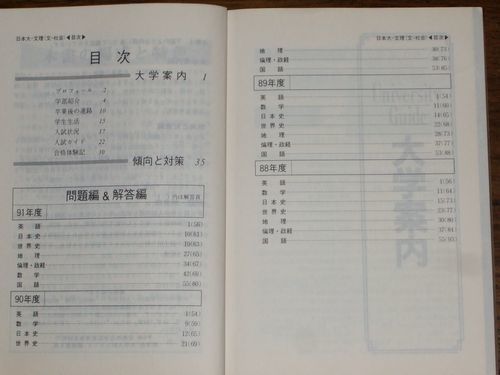 日本大-文理(文・社会)◀目次▶
目次
大学案内 1
プロフィール 2
学部紹介 4
卒業後の進路 10
学生生活 15
入試状況 17
入試ガイド 22
合格体験記 30
傾向と対策 35
問題編&解答編
91年度
英語 1(56)
日本史 10(61)
世界史 18(63)
地理 27(65)
倫理・政経 34(67)
数学 42(69)
国語 55(80)
90年度
英語 4(54)
数学 9(59)
日本史 12(65)
世界史 21(69)
日本大-文理(文・社会)◀目次▶
地理 30(73)
倫理・政経 38(76)
国語 53(85)
89年度
英語 4(54)
数学 11(60)
日本史 14(65)
世界史 22(68)
地理 28(73)
倫理・政経 37(77)
国語 53(88)
88年度
英語 4(56)
数学 11(64)
日本史 15(73)
世界史 23(77)
地理 30(80)
倫理・政経 37(84)
国語 55(93)
University Guide
大学案内